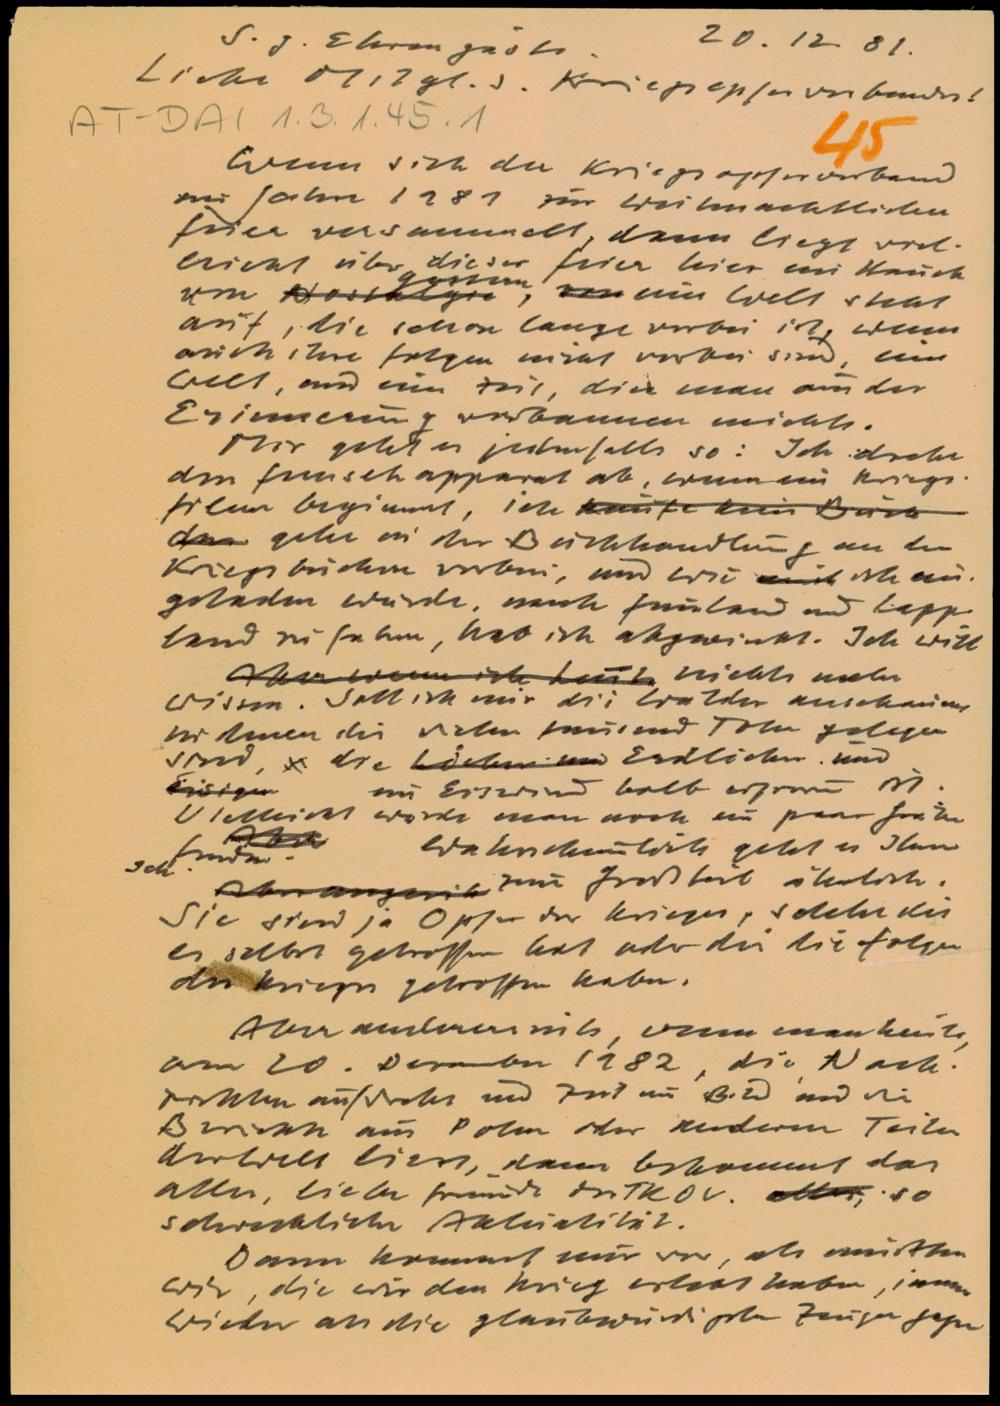 S. g. Ehrengäste. 20. 12. 81.
Liebe Mitgl. d. Kriegsopferverbandes!
AT-DAI 1.3.1.45.1
45
Wenn sich der Kriegsopferverband
im Jahre 1981 zur weihnachtlichen
Feier versammelt, dann liegt viel-
leicht über dieser Feier hier ein Hauch
gestern
von Nostalgie, von eine Welt steht
auf, die schon lange vorbei ist, wenn
auch ihre Folgen nicht vorbei sind, eine
Welt, und eine Zeit, die man aus der
Erinnerung verbannen möchte.
Mir geht es jedenfalls so: Ich drehe
den Fernsehapparat ab, wenn ein Kriegs-
film beginnt, ich kaufe kein Buch
das gehe in der Buchhandlung an den
Kriegsbüchern vorbei, und wie ich ein-
geladen wurde, nach Finnland und Lapp-
land zu fahren, hab ich abgewinkt. Ich will
Aber wenn ich heute nichts mehr
wissen. Soll ich mir die Wälder anschauen
in denen die vielen tausend Toten gelegen
sind, die Löcher im Erdlöcher und
Eisigen im Eiswind halb erfroren ist.
Vielleicht würde man noch ein paar Gräber
finden. Aber Wahrscheinlich geht es Ihnen
Ich
zum Großteil ähnlich.
Sie sind ja Opfer des Krieges, solche die
es selbst getroffen hat oder die die Folgen
des Krieges getroffen haben.
Aber andererseits, wenn man heute,
am 20. Dezember 1982, die Nach-
richten aufdreht und Zeit im Bild und die
Berichte aus Polen oder anderen Teilen
der Welt liest, dann bekommt das
alles, liebe Freunde des TKOV. alles, so
schreckliche Aktualität.
Dann kommt mir vor, als müßten
wir, die wir den Krieg erlebt haben, immer
wieder als die glaubwürdigsten Zeugen gegen